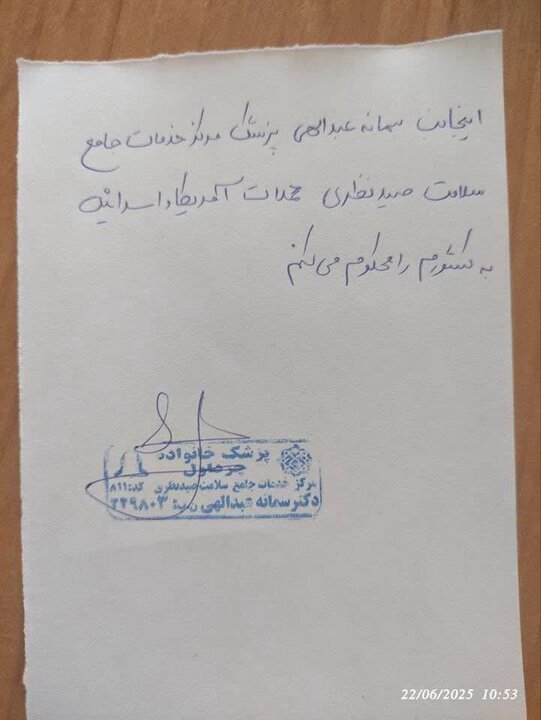 اینجانب سمانه عبدالهی پزشک مرکز خدمات جامع
سلامت صیدنظری حملات آمریکا و اسرائیل
به کشورم را محکوم می‌کنم
پزشک خانواده
چرداول
مرکز خدمات جامع سلامت صیدنظری کد: ۸۱۱
دکتر سمانه عبدالهی
22/06/2025 10:53